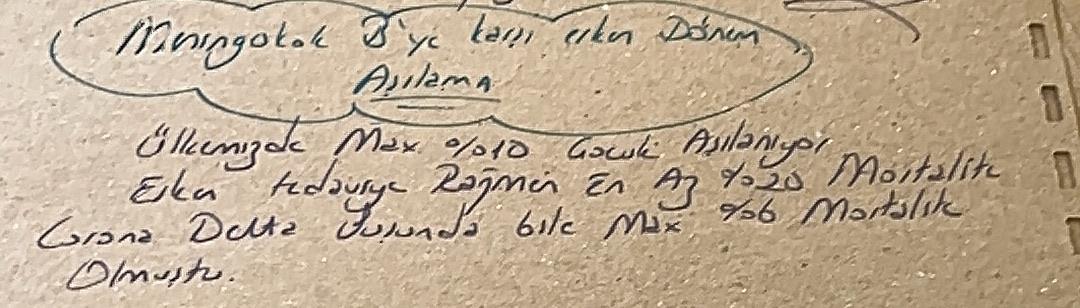 Meningokok B'ye karşı erken Dönem
Aşılama
Ülkemizde Max %10 Çocuk Aşılanıyor
Erken tedaviye Rağmen En Az %20 Mortalite
Corona Delta Virüsünde bile Max %6 Mortalite
Olmuştu.